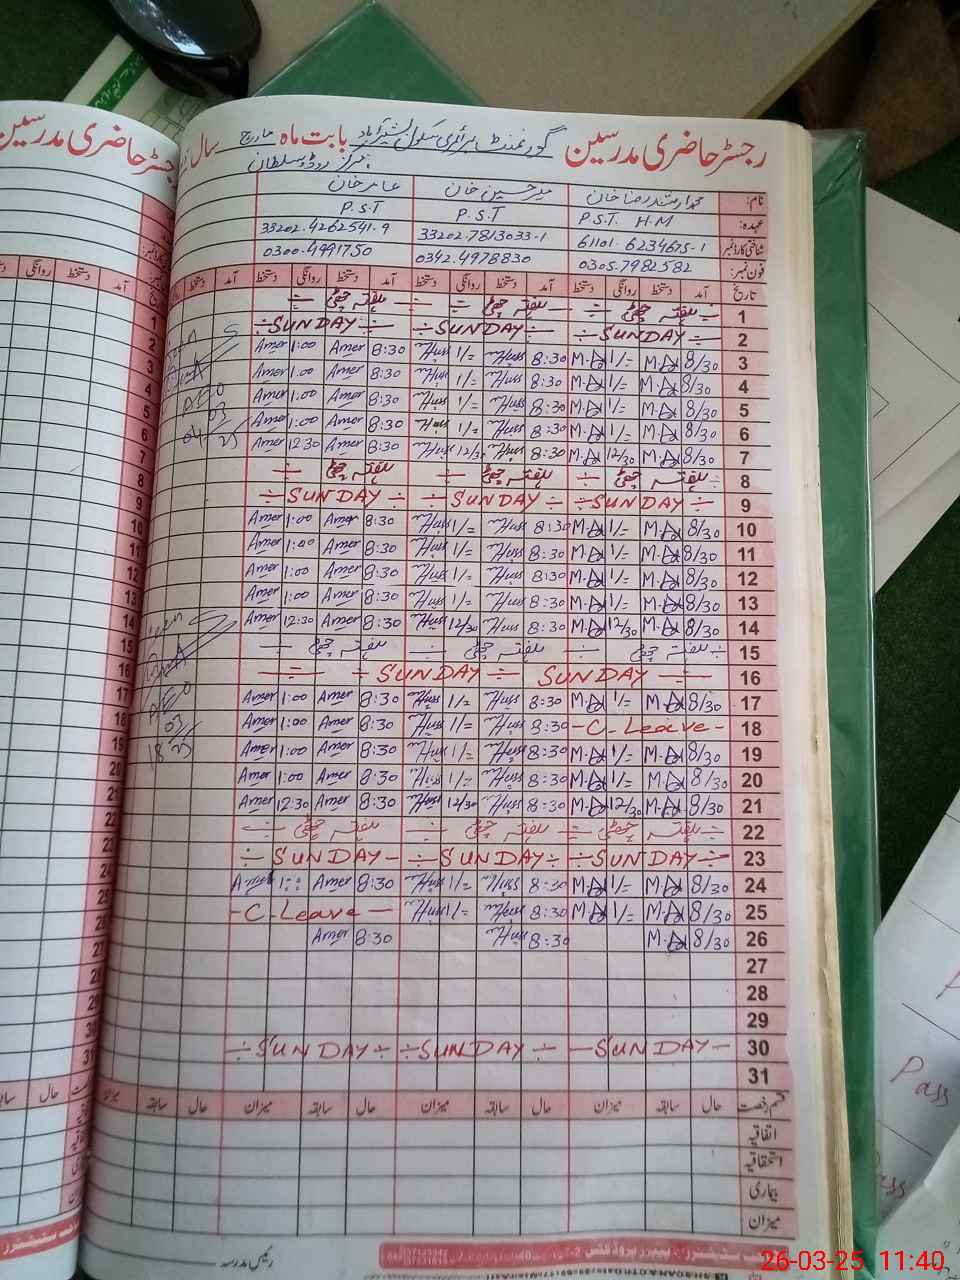 رجسٹر حاضری مدرسین گورنمنٹ پرائمری سکول بشیر آباد بابت ماہ مارچ سال
مرکز روڈو سلطان
نام: محمد ارشد رضا خان میر حسین خان عامر خان
عہدہ: P.S.T. H.M P.S.T P.S.T
شناختی کارڈ نمبر 61101.6234675-1 33202.7813033-1 33202.4262541.9
فون نمبر: 0305.7982582 0342.4978830 0300.4991750
تاریخ آمد دستخط روانگی دستخط آمد دستخط روانگی دستخط آمد دستخط روانگی دستخط
1 ہفتہ چھٹی ہفتہ چھٹی ہفتہ چھٹی
2 SUNDAY SUNDAY SUNDAY
3 8/30 M.A 1/= M.A 8:30 Huss 1/= Huss 8:30 Amer 1:00 Amer
4 8/30 M.A 1/= M.A 8:30 Huss 1/= Huss 8:30 Amer 1:00 Amer
5 8/30 M.A 1/= M.A 8:30 Huss 1/= Huss 8:30 Amer 1:00 Amer
6 8/30 M.A 1/= M.A 8:30 Huss 1/= Huss 8:30 Amer 1:00 Amer
7 8/30 M.A 12/30 M.A 8:30 Huss 12/30 Huss 8:30 Amer 12:30 Amer
8 ہفتہ چھٹی ہفتہ چھٹی ہفتہ چھٹی
9 SUNDAY SUNDAY SUNDAY
10 8/30 M.A 1/= M.A 8:30 Huss 1/= Huss 8:30 Amer 1:00 Amer
11 8/30 M.A 1/= M.A 8:30 Huss 1/= Huss 8:30 Amer 1:00 Amer
12 8/30 M.A 1/= M.A 8:30 Huss 1/= Huss 8:30 Amer 1:00 Amer
13 8/30 M.A 1/= M.A 8:30 Huss 1/= Huss 8:30 Amer 1:00 Amer
14 8/30 M.A 12/30 M.A 8:30 Huss 12/30 Huss 8:30 Amer 12:30 Amer
15 ہفتہ چھٹی ہفتہ چھٹی ہفتہ چھٹی
16 SUNDAY SUNDAY
17 8/30 M.A 1/= M.A 8:30 Huss 1/= Huss 8:30 Amer 1:00 Amer
18 C. Leave 8:30 Huss 1/= Huss 8:30 Amer 1:00 Amer
19 8/30 M.A 1/= M.A 8:30 Huss 1/= Huss 8:30 Amer 1:00 Amer
20 8/30 M.A 1/= M.A 8:30 Huss 1/= Huss 8:30 Amer 1:00 Amer
21 8/30 M.A 12/30 M.A 8:30 Huss 12/30 Huss 8:30 Amer 12:30 Amer
22 ہفتہ چھٹی ہفتہ چھٹی ہفتہ چھٹی
23 SUNDAY SUNDAY SUNDAY
24 8/30 M.A 1/= M.A 8:30 Huss 1/= Huss 8:30 Amer 1:00 Amer
25 8/30 M.A 1/= M.A 8:30 Huss 1/= Huss C. Leave
26 8/30 M.A 8:30 Huss 8:30 Amer
27
28
29
30 SUNDAY SUNDAY SUNDAY
31
قسم رخصت حال سابقہ میزان حال سابقہ میزان حال سابقہ میزان حال سابقہ میزان
اتفاقیہ
استحقاقیہ
بیماری
میزان
رئیس مدرسہ
AEO
04 03 25
AEO
18 03 25
Pass
26-03-25 11:40